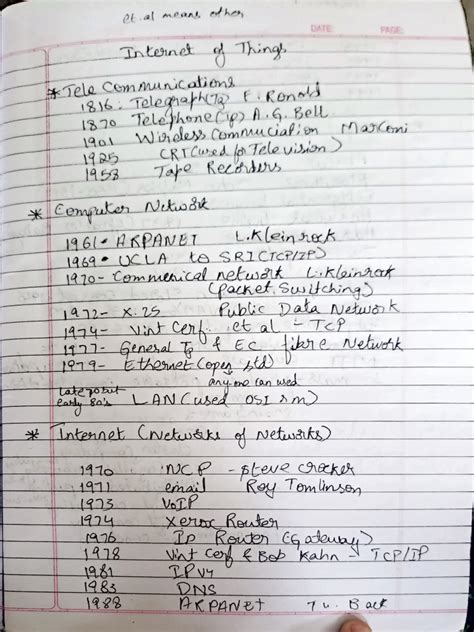 et.al means other
DATE: PAGE:
Internet of Things
* Tele Communications
1816: Telegraph(Tg) F. Ronald
1870 Telephone(ip) A.G. Bell
1901 Wireless Commuciation Marconi
1925 CRT(used for Television)
1958 Tape Recorders
* Computer Network
1961- ARPANET L.Kleinrock
1969- UCLA to SRI(TCP/IP)
1970- Commenical network L.Kleinrock
(Packet Switching)
1972- X.25 Public Data Network
1974- Vint Cerf. et al - TCP
1977- General Tg & EC fibre Network
1979- Ethernet(open std)
anyone can used
early 80's LAN(used OSI rm)
* Internet (Networks of Networks)
1970 NCP - Steve Crocker
1971 email Roy Tomlinson
1973 VoIP
1974 Xerox Router
1976 Ip Router (Gateway)
1978 Vint Cerf & Bob Kahn - TCP/IP
1981 IPv4
1983 DNS
1988 ARPANET Back